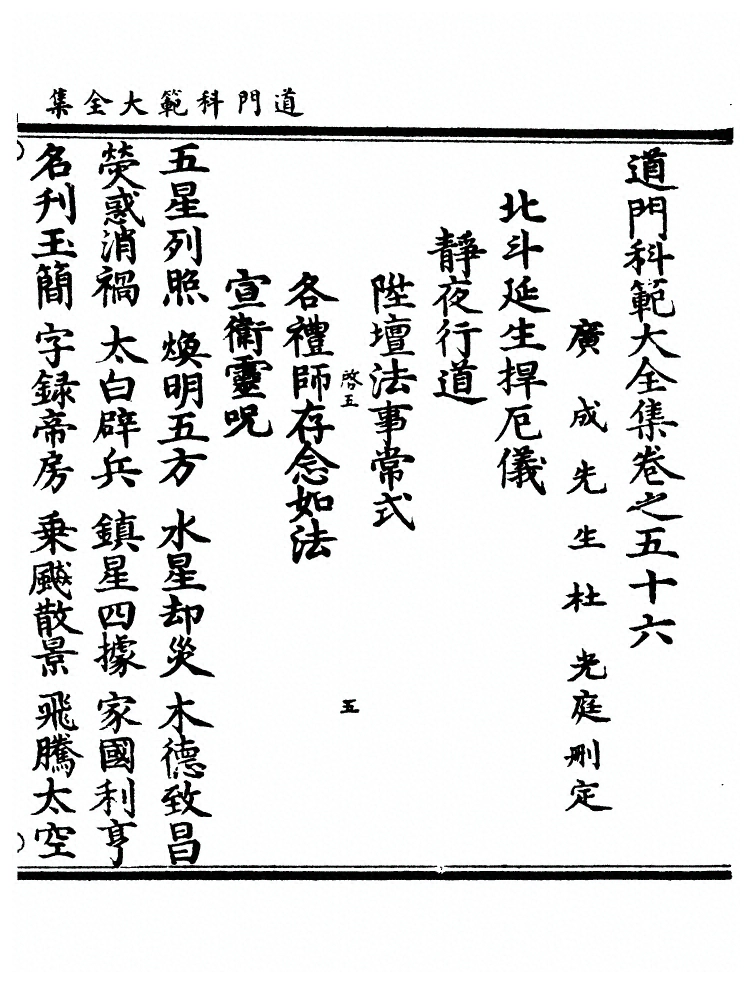 道門科範大全集
道門科範大全集卷之五十六
廣成先生杜光庭刪定
北斗延生捍厄儀
靜夜行道
陞壇法事常式
啓五
五
各禮師存念如法
宣衛靈呪
五星列照 煥明五方 水星却災 木德致昌
熒惑消禍 太白辟兵 鎮星四據 家國利亨
名刋玉簡 字録帝房 乗飈散景 飛騰太空